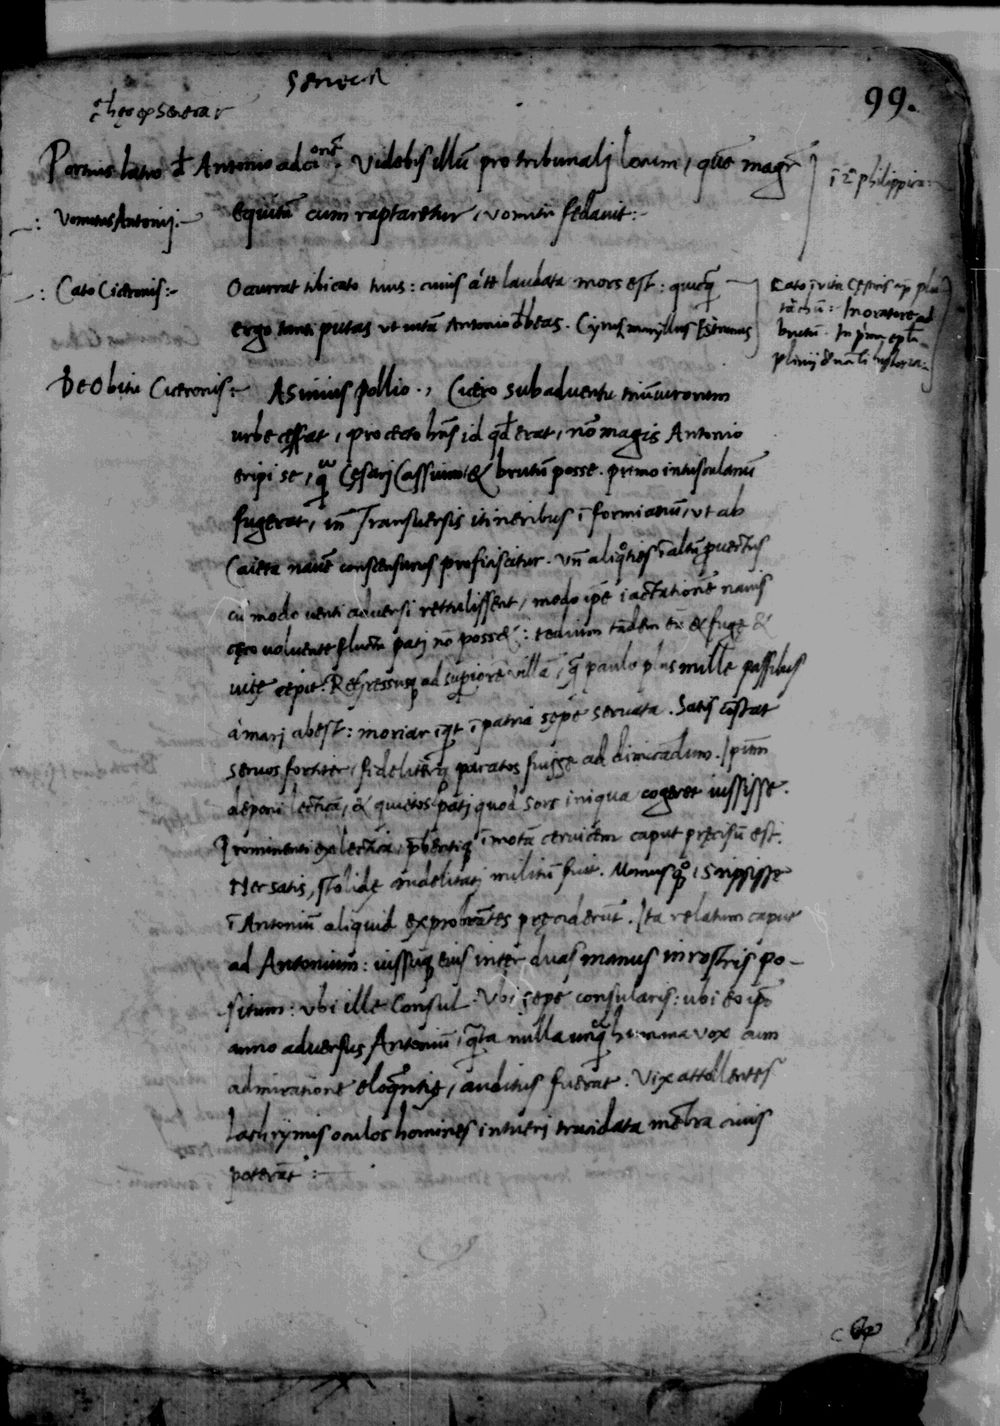 Seneca
99.
Portius latro đ Antonio ad ciōnē. Videbis illū pro tribunalj locum, quē magr̄
ī 2ª philippica:
Vomitus Antonij:~
equitū cum raptaretur, vomitu fedauit:~
Cato Ciceronis:~
Occurrat tibi cato tuus: cuius a te laudata mors est: quicq̄
ergo tanti putas ut uitā Antonio đbeas.
Cato ī vita Cęsaris ap plu
tarchū: In oratore ad
brutū.
De Obitu Ciceronis:~ Asinius pollio., Cicero sub aduentu triūuirorum
urbe cessat, pro certo hn̄s id qđ erat, nō magis Antonio
eripi se, q̄ Cęsarj Cassium & brutū posse. primo in tusculanū
fugerat, in̄ Transuersis itineribus ī formianū, ut ab
Caieta nauē conscensurus proficiscitur. Vn̄ aliqͦties ī altū prouectus
cū modo uenti aduersi rettulissent, modo ip̄e iactationē nauis
cęco voluente fluctu patj nō posset: tedium tādem eū & fugę &
uitę cepit. Regressusq̨ ad supiorē villā, q̄ paulo plus mille passibus
a marj abest: moriar īqt ī patria sępe seruata. Satis cōstat
seruos fortiter, fideliterq̨ paratos fuisse ad dimicādum. Ipsum
deponi lecticā, & quietos patj quod sors iniqua cogeret iussisse.
Prominenti ex lectica, p̄bentiq̨ īmotā ceruicem caput pręcisū est.
Nec satis, stolidę crudelitatj militū fuit. Manus qͦq̨, scripsisse
ī Antoniū aliquid exprobrātes pręciderūt. Ita relatum caput
ad Antonium: iussuq̨ eius inter duas manus in rostris po-
situm: vbi ille Consul. Vbi sępe consularis: vbi eo ip̄o
anno aduersus Antoniū, q̄ta nulla unq̄ humana vox cum
admiratione eloquētię, auditus fuerat. Vix attollentes
lachrymis oculos homines intuerj trucidata mēbra ciuis
poterāt:~